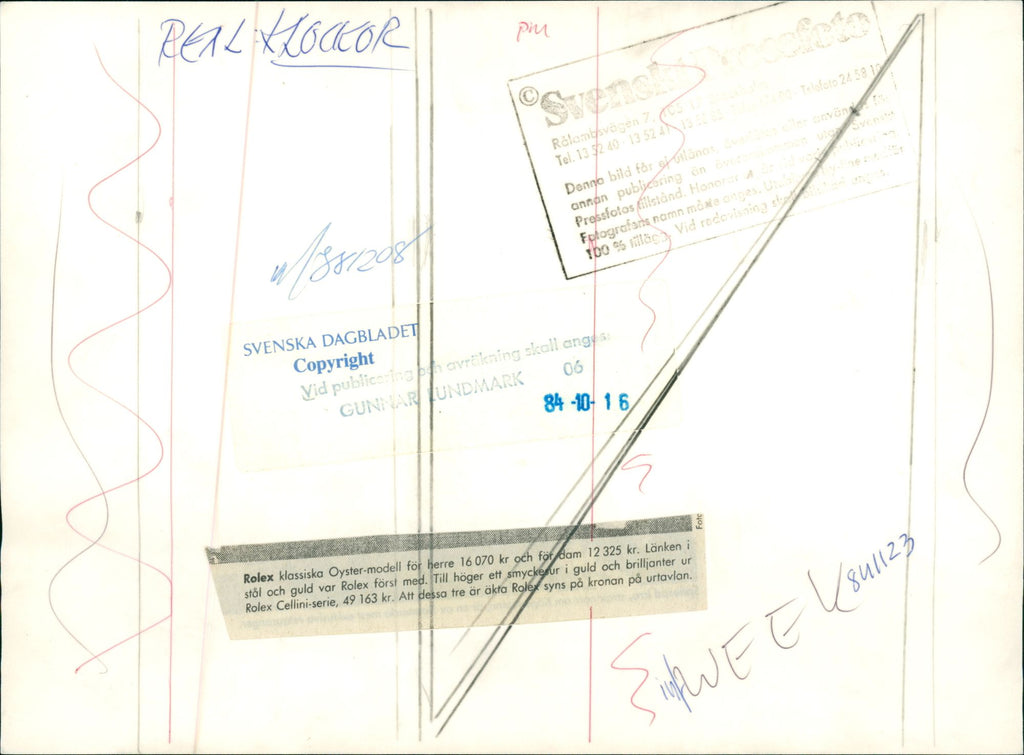 REAL KLOCKOR
Pm
© Svenskt Pressfoto
Rålambsvägen 7, 105 17
Tel. 13 52 40 - 13 52 41 - 13 52 82 Telefoto 24 58 12
Denna bild får ej utlånas, överlåtas eller användas för
annan publicering än överenskommet utan Svenskt
Pressfotos tillstånd. Honorar
Fotografens namn måste anges.
100 % tillägg. Vid redovisning skall anges.
inf 881208
SVENSKA DAGBLADET
Copyright
Vid publicering och avräkning skall anges:
GUNNAR LUNDMARK 06
84 -10- 1 6
Foto
Rolex klassiska Oyster-modell för herre 16 070 kr och för dam 12 325 kr. Länken i
stål och guld var Rolex först med. Till höger ett smyckesur i guld och briljanter ur
Rolex Cellini-serie, 49 163 kr. Att dessa tre är äkta Rolex syns på kronan på urtavlan.
inf WEEK 841123